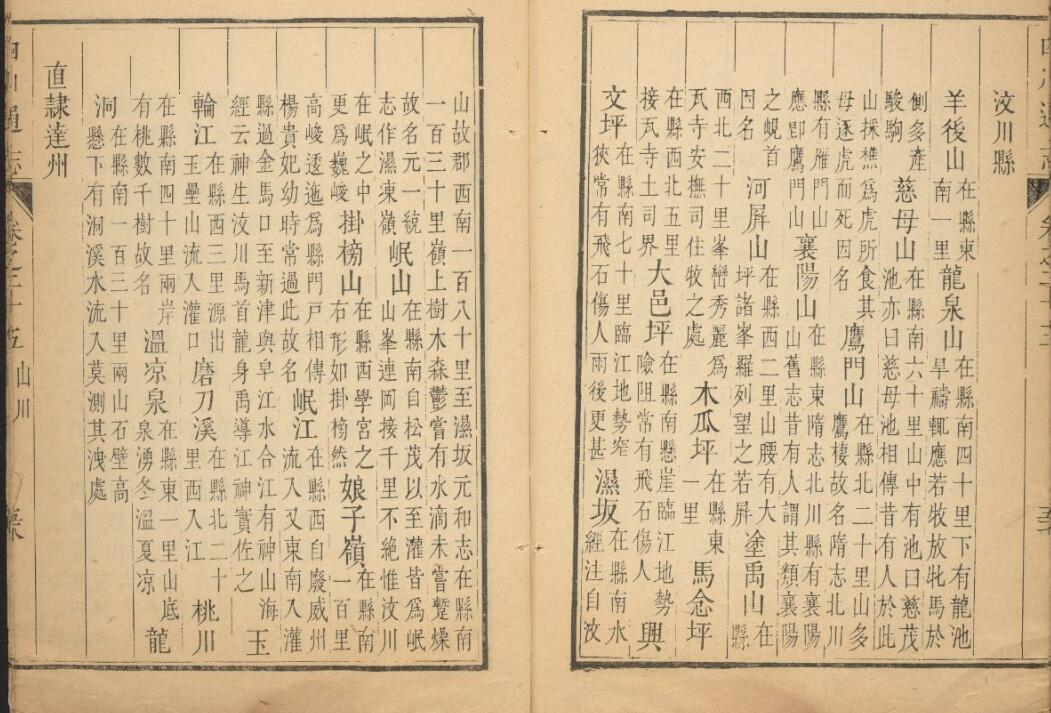 汶川縣
羊後山在縣東南一里龍泉山在縣南四十里下有龍池旱禱輒應若牧放牝馬於
側多產駿駒慈母山在縣南六十里山中有池曰慈茂池亦曰慈母池相傳昔有人於此
山採樵爲虎所食其母逐虎而死因名鷹門山在縣北二十里山多鷹棲故名隋志北川
縣有雁門山應卽鷹門山襄陽山在縣東隋志北川縣有襄陽山舊志昔有人謂其類襄陽
之峴首因名河屏山在縣西二里山腰有大坪諸峯羅列望之若屏塗禹山在縣
西北二十里峯巒秀麗爲瓦寺安撫司住牧之處木瓜坪在縣東一里馬念坪
在縣西北五里接瓦寺土司界大邑坪在縣南懸崖臨江地勢險阻常有飛石傷人興
文坪在縣南七十里臨江地勢窄狹常有飛石傷人雨後更甚濕坂在縣南水經注自汶
山故郡西南一百八十里至濕坂元和志在縣南一百三十里嶺上樹木森鬱嘗有水滴未嘗蹔燥
故名元一統志作濕凍嶺岷山在縣南自松茂以至灌皆爲岷山峯連岡接千里不絶惟汶川
在岷之中更爲巍峻掛榜山在縣西學宮之右形如掛榜然娘子嶺在縣南一百里
高峻逶迤爲縣門戸相傳楊貴妃幼時常過此故名岷江在縣西自廢威州流入又東南入灌
縣過金馬口至新津與皁江水合江有神山海經云神生汶川馬首龍身禹導江神實佐之玉
輪江在縣西三里源出玉壘山流入灌口磨刀溪在縣北二十里西入江桃川
在縣南四十里兩岸有桃數千樹故名溫凉泉在縣東一里山底泉湧冬溫夏凉龍
洞在縣南一百三十里兩山石壁高懸下有洞溪水流入莫測其洩處
直隸達州
山川